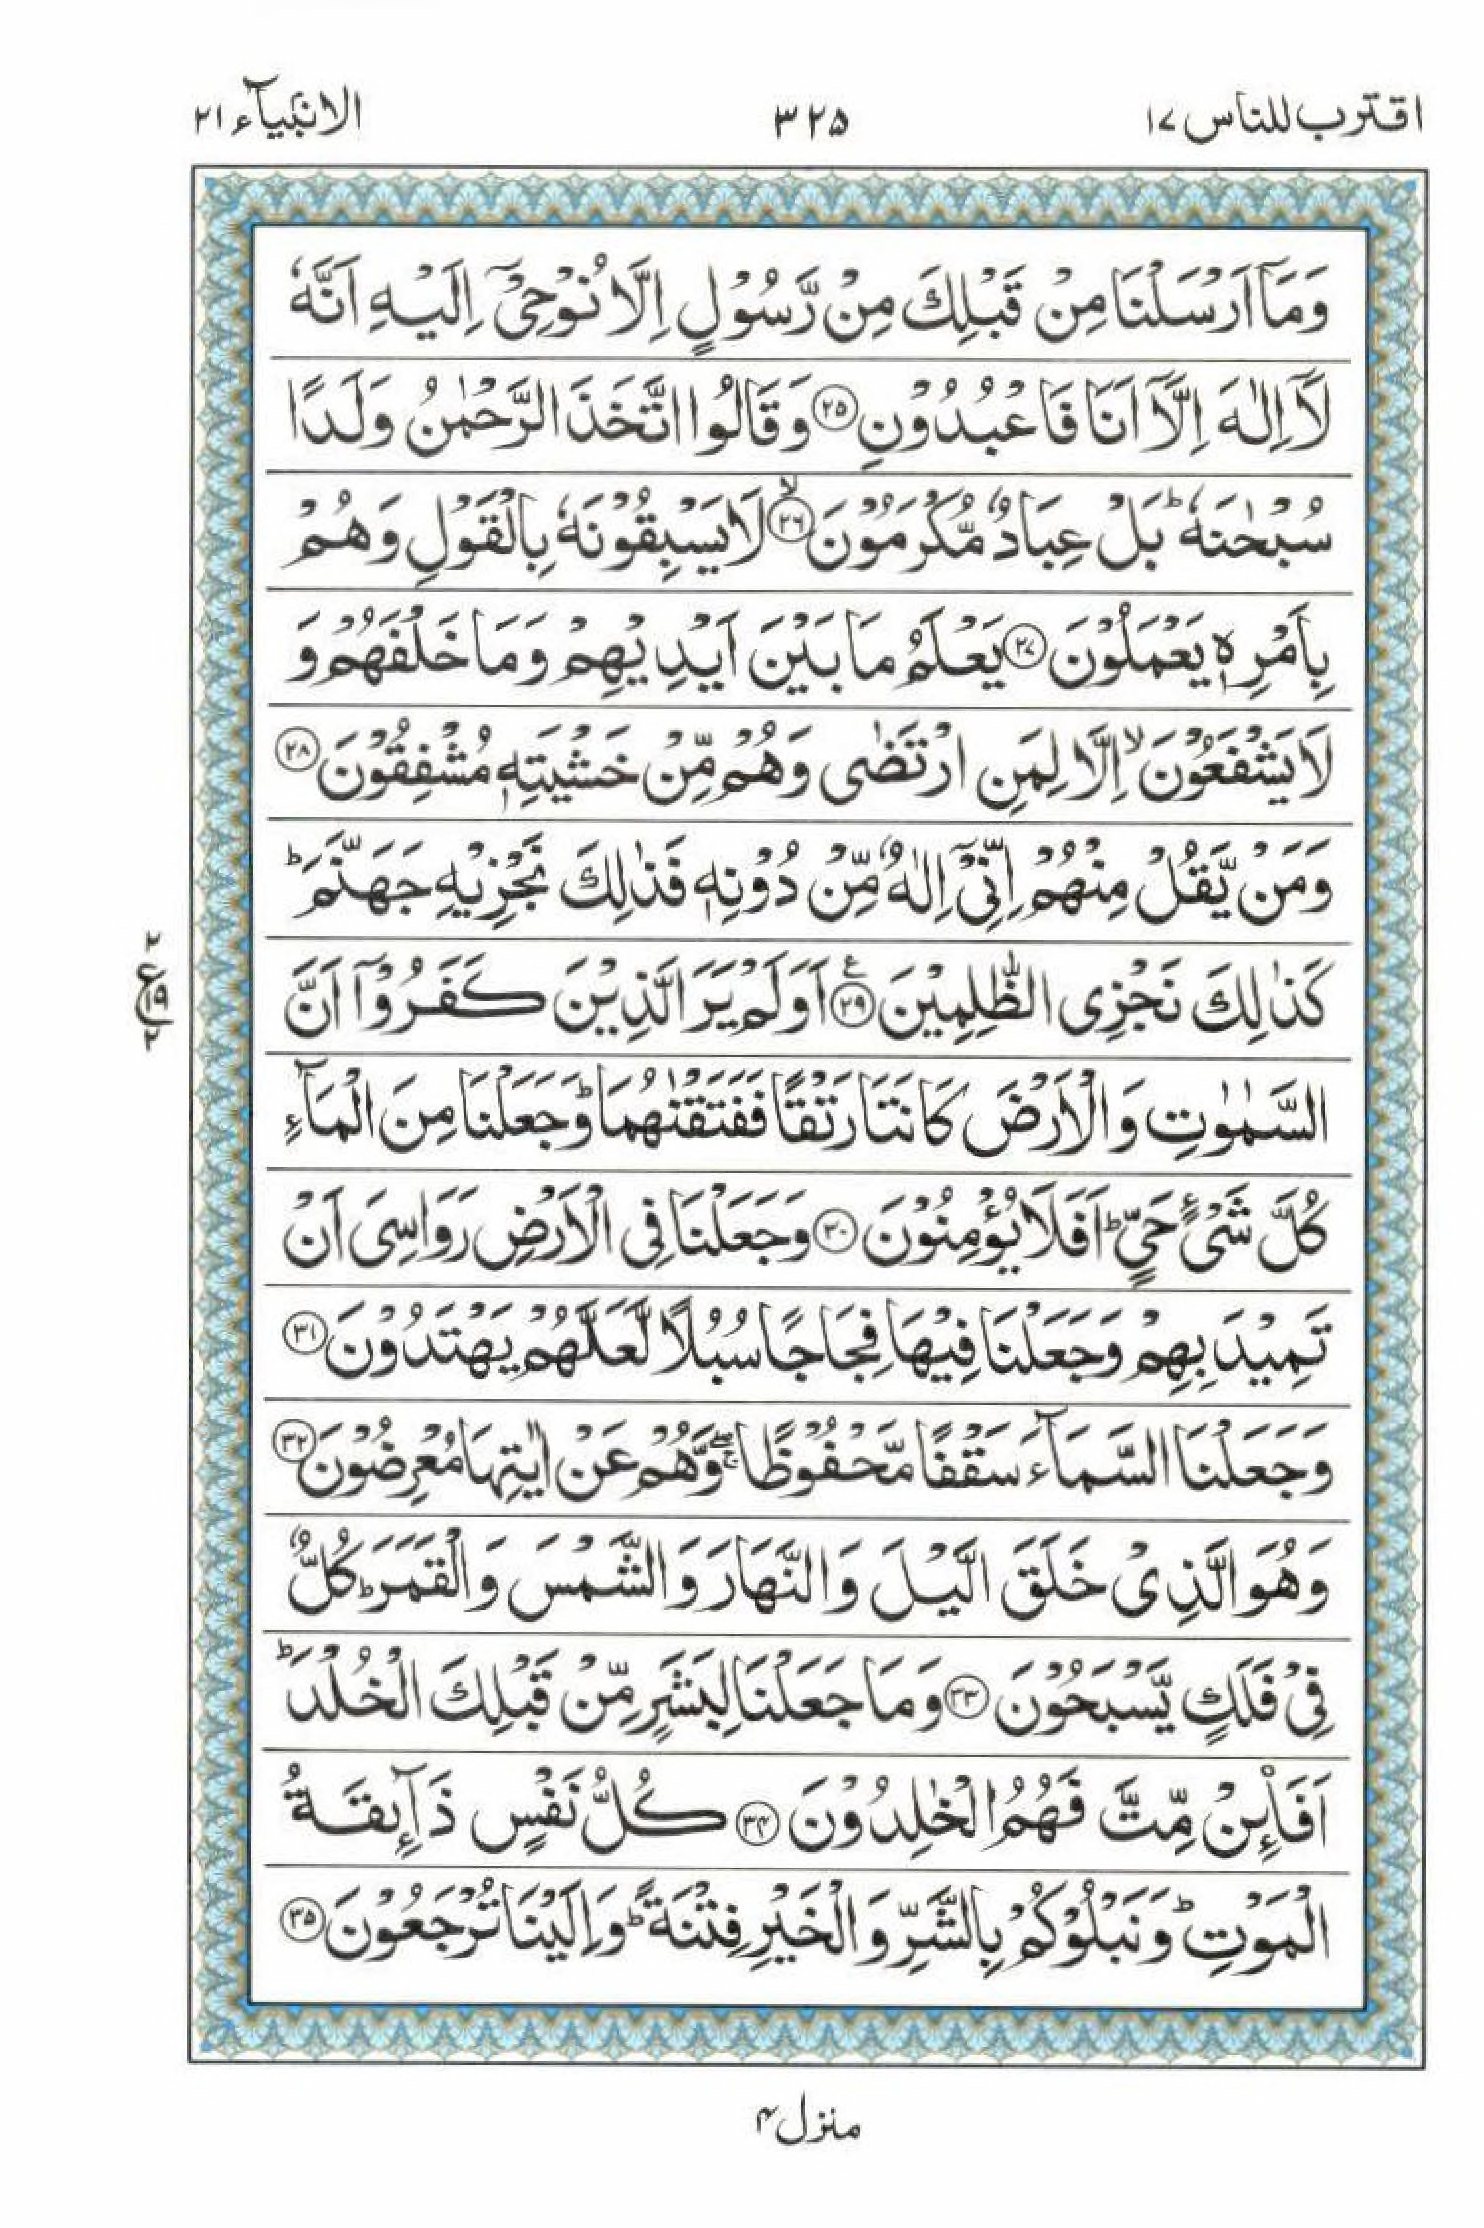 اقترب للناس ١٧
٣٢٥
الانبيآء ٢١
وَمَاۤ اَرۡسَلۡنَا مِنۡ قَبۡلِكَ مِنۡ رَّسُوۡلٍ اِلَّا نُوۡحِىۡۤ اِلَيۡهِ اَنَّهٗ
لَاۤ اِلٰهَ اِلَّاۤ اَنَا فَاعۡبُدُوۡنِ ﴿۲۵﴾ وَقَالُوا اتَّخَذَ الرَّحۡمٰنُ وَلَدًا
سُبۡحٰنَهٗ‌ؕ بَلۡ عِبَادٌ مُّكۡرَمُوۡنَ ۙ‏﴿۲۶﴾ لَا يَسۡبِقُوۡنَهٗ بِالۡقَوۡلِ وَهُمۡ
بِاَمۡرِهٖ يَعۡمَلُوۡنَ ﴿۲۷﴾ يَعۡلَمُ مَا بَيۡنَ اَيۡدِيۡهِمۡ وَمَا خَلۡفَهُمۡ وَ
لَا يَشۡفَعُوۡنَۙ اِلَّا لِمَنِ ارۡتَضٰى وَهُمۡ مِّنۡ خَشۡيَتِهٖ مُشۡفِقُوۡنَ ﴿۲۸﴾
وَمَنۡ يَّقُلۡ مِنۡهُمۡ اِنِّىۡۤ اِلٰهٌ مِّنۡ دُوۡنِهٖ فَذٰلِكَ نَجۡزِيۡهِ جَهَنَّمَ‌ؕ
كَذٰلِكَ نَجۡزِى الظّٰلِمِيۡنَ ﴿۲۹﴾ع اَوَلَمۡ يَرَ الَّذِيۡنَ كَفَرُوۡۤا اَنَّ
السَّمٰوٰتِ وَالۡاَرۡضَ كَانَتَا رَتۡقًا فَفَتَقۡنٰهُمَا‌ؕ وَجَعَلۡنَا مِنَ الۡمَآءِ
كُلَّ شَىۡءٍ حَىٍّ‌ؕ اَفَلَا يُؤۡمِنُوۡنَ ﴿۳۰﴾ وَجَعَلۡنَا فِى الۡاَرۡضِ رَوَاسِىَ اَنۡ
تَمِيۡدَ بِهِمۡ وَجَعَلۡنَا فِيۡهَا فِجَاجًا سُبُلًا لَّعَلَّهُمۡ يَهۡتَدُوۡنَ ﴿۳۱﴾
وَجَعَلۡنَا السَّمَآءَ سَقۡفًا مَّحۡفُوۡظًا ۖۚ وَّهُمۡ عَنۡ اٰيٰتِهَا مُعۡرِضُوۡنَ ﴿۳۲﴾
وَهُوَ الَّذِىۡ خَلَقَ الَّيۡلَ وَالنَّهَارَ وَالشَّمۡسَ وَالۡقَمَرَ‌ؕ كُلٌّ
فِىۡ فَلَكٍ يَّسۡبَحُوۡنَ ﴿۳۳﴾ وَمَا جَعَلۡنَا لِبَشَرٍ مِّنۡ قَبۡلِكَ الۡخُلۡدَ‌ؕ
اَفَا۟ئِنۡ مِّتَّ فَهُمُ الۡخٰلِدُوۡنَ ﴿۳۴﴾ كُلُّ نَفۡسٍ ذَآئِقَةُ
الۡمَوۡتِ‌ؕ وَنَبۡلُوۡكُمۡ بِالشَّرِّ وَالۡخَيۡرِ فِتۡنَةً‌ؕ وَاِلَيۡنَا تُرۡجَعُوۡنَ ﴿۳۵﴾
٢
ع ١٩
٢
منزل ۴